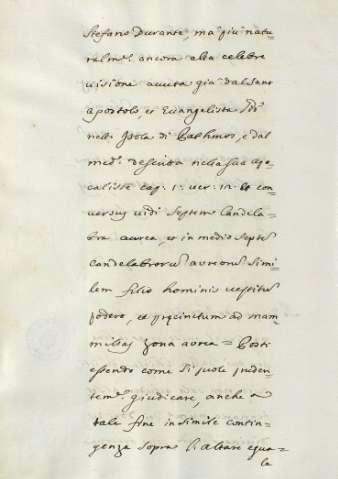 Stefano Durante, ma più natu
ralm.e ancora alla celebre
uisione auuta già dal Sant
Apostolo, et Euangelista
nell Isola di Pathmos, e dal
med.o descritta nella sua Apo
calisse cap: 1: uer: 12 Et con
uersus uidi Septem Candela
bra aurea, et in medio Septē
candelabrorū aureorū Simi
lem filio hominis uestitū
podere, et præcinctum ad mam
millas zona aurea =
essendo come si suole pruden
tem.e giudicare, anche a
tale fine in simile contin
genza sopra l'altare egua=
le